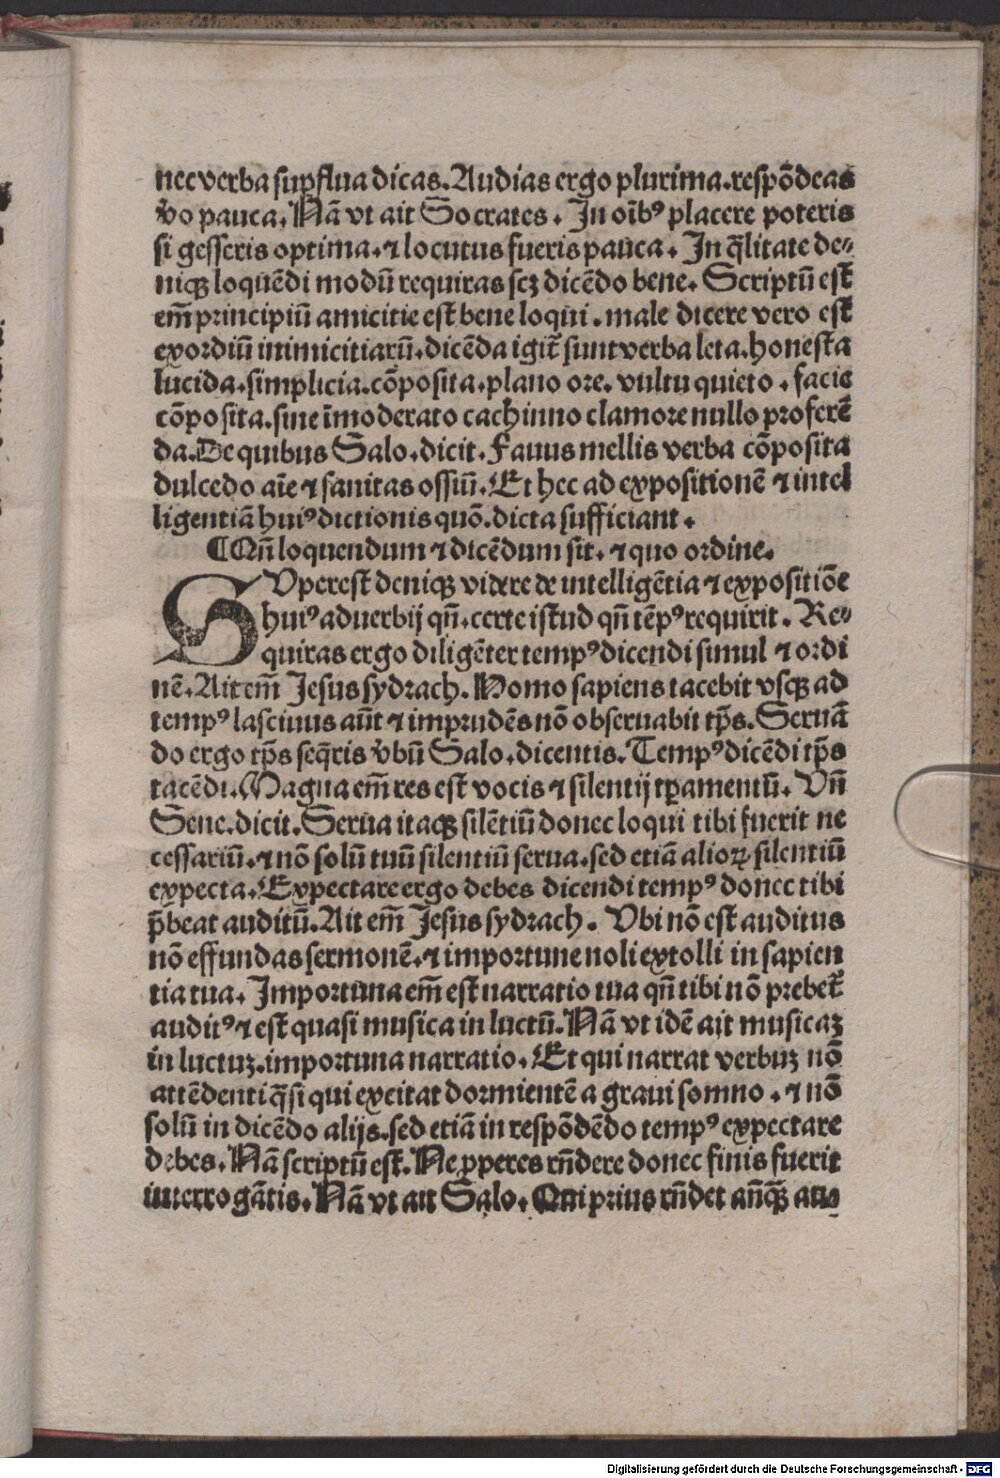 nec verba suꝑflua dicas. Audias ergo plurima. respōdeas
v̄o pauca. Nā vt ait Socrates. In oīb⁹ placere poteris
si gesseris optima. ⁊ locutus fueris pauca. In q̄litate de⸗
niqꝫ loquēdi modū requiras scꝫ dicēdo bene. Scriptū est
em̄ principiū amicitie est bene loqui. male dicere vero est
exordiū inimicitiarū. dicēda igit̄ sunt verba leta. honesta
lucida. simplicia. cōposita. plano ore. vultu quieto. facie
cōposita. sine īmoderato cachinno clamore nullo proferē
da. De quibus Salo. dicit. Fauus mellis verba cōposita
dulcedo aīe ⁊ sanitas ossiū. Et hec ad expositionē ⁊ intel
ligentiā hui⁹ dictionis quō. dicta sufficiant.
¶ Qn̄ loquendum ⁊ dicēdum sit. ⁊ quo ordine.
SVperest deniqꝫ videre de intelligētia ⁊ expositiōe
hui⁹ aduerbij qn̄. certe istud qn̄ tēp⁹ requirit. Re⸗
quiras ergo diligēter temp⁹ dicendi simul ⁊ ordi
nē. Ait em̄ Jesus sydrach. Homo sapiens tacebit vsqꝫ ad
temp⁹ lasciuus aūt ⁊ imprudēs nō obseruabit tp̄s. Seruā
do ergo tp̄s seq̄ris v̄bū Salo. dicentis. Temp⁹ dicēdi tp̄s
tacēdi. Magna em̄ res est vocis ⁊ silentij tꝑamentū. Vn̄
Sene. dicit. Serua itaqꝫ silētiū donec loqui tibi fuerit ne
cessariū. ⁊ nō solū tuū silentiū serua. sed etiā alioꝝ silentiū
expecta. Expectare ergo debes dicendi temp⁹ donec tibi
p̄beat auditū. Ait em̄ Jesus sydrach. Vbi nō est auditus
nō effundas sermonē. ⁊ importune noli extolli in sapien
tia tua. Importuna em̄ est narratio tua qn̄ tibi nō prebet̄
audit⁹ ⁊ est quasi musica in luctū. Nā vt idē ait musicaꝫ
in luctuꝫ. importuna narratio. Et qui narrat verbuꝫ nō
attēdenti q̄si qui excitat dormientē a graui somno. ⁊ nō
solū in dicēdo alijs. sed etiā in respōdēdo temp⁹ expectare
debes. Nā scriptū est. Ne ꝓperes rn̄dere donec finis fuerit
interrogātis. Nā vt ait Salo. Qui prius rn̄det an̄qꝫ au⸗
Digitalisierung gefördert durch die Deutsche Forschungsgemeinschaft - DFG